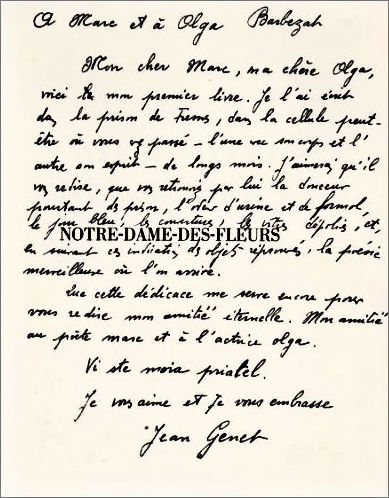 A Marc et à Olga Barbezat
Mon cher Marc, ma chère Olga,
voici mon premier livre. Je l'ai écrit
dans la prison de Fresnes, dans la cellule peut-
être où vous avez passé – l'une avec son corps et l'
autre son esprit – de longs mois. J'aimerais qu'il
vous redise, que vous retrouviez par lui la douceur
pourtant des prisons, l'odeur d'urine et de formol,
le bleu, les couvertures, les vitres dépolies, et,
NOTRE-DAME-DES-FLEURS
en suivant ces indications d'objets éprouvés, la poésie
merveilleuse où l'on arrive.
Que cette dédicace me serve encore pour
vous redire mon amitié éternelle. Mon amitié
au poète marc et à l'actrice olga.
Vi ste moia priatel.
Je vous aime et Je vous embrasse
Jean Genet